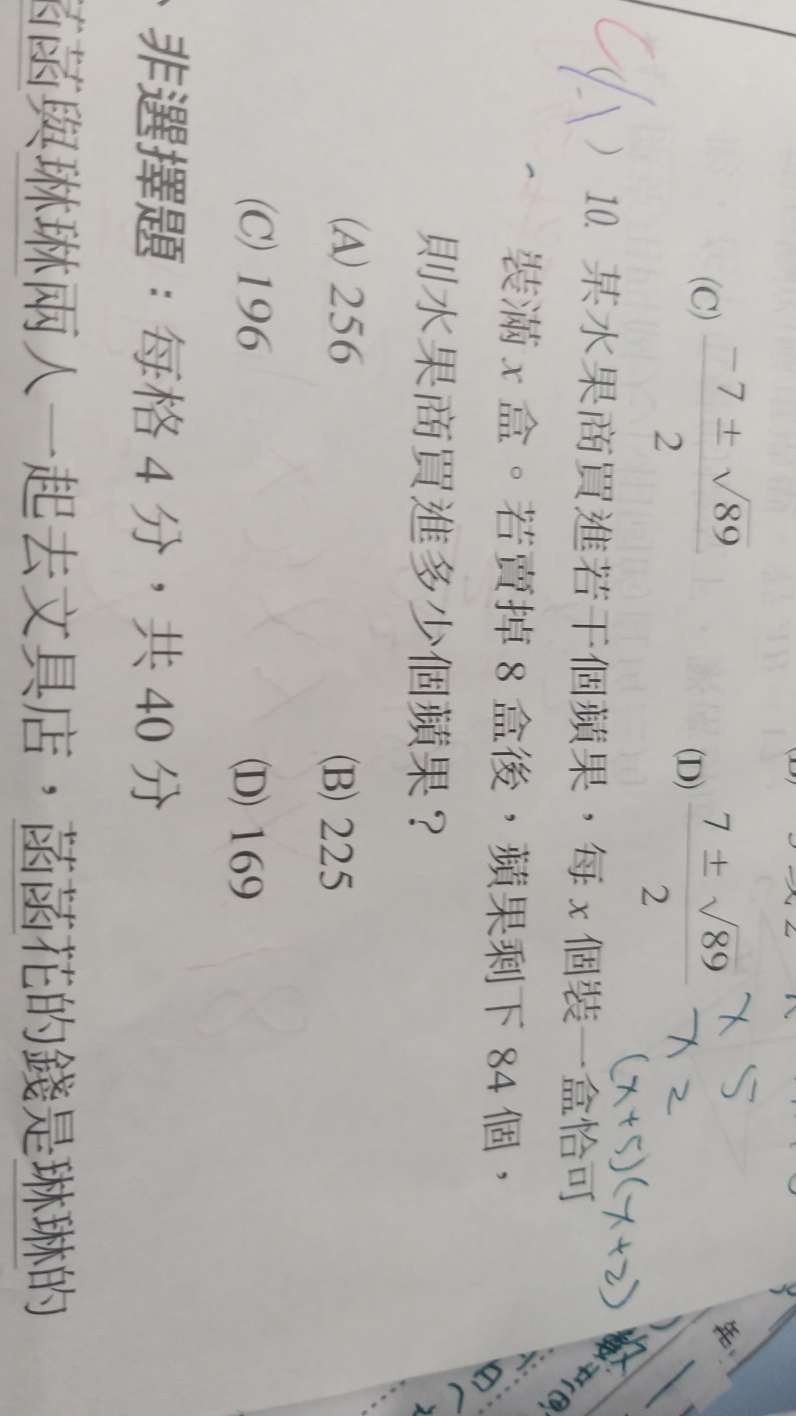 (C) −7 ± √89 / 2 (D) 7 ± √89 / 2
x 5
x 2
(x+5)(x+2)
) 10. 某水果商買進若干個蘋果，每 x 個裝一盒恰可
裝滿 x 盒。若賣掉 8 盒後，蘋果剩下 84 個，
則水果商買進多少個蘋果？
(A) 256 (B) 225
(C) 196 (D) 169
、非選擇題：每格 4 分，共 40 分
菡菡與琳琳兩人一起去文具店，菡菡花的錢是琳琳的